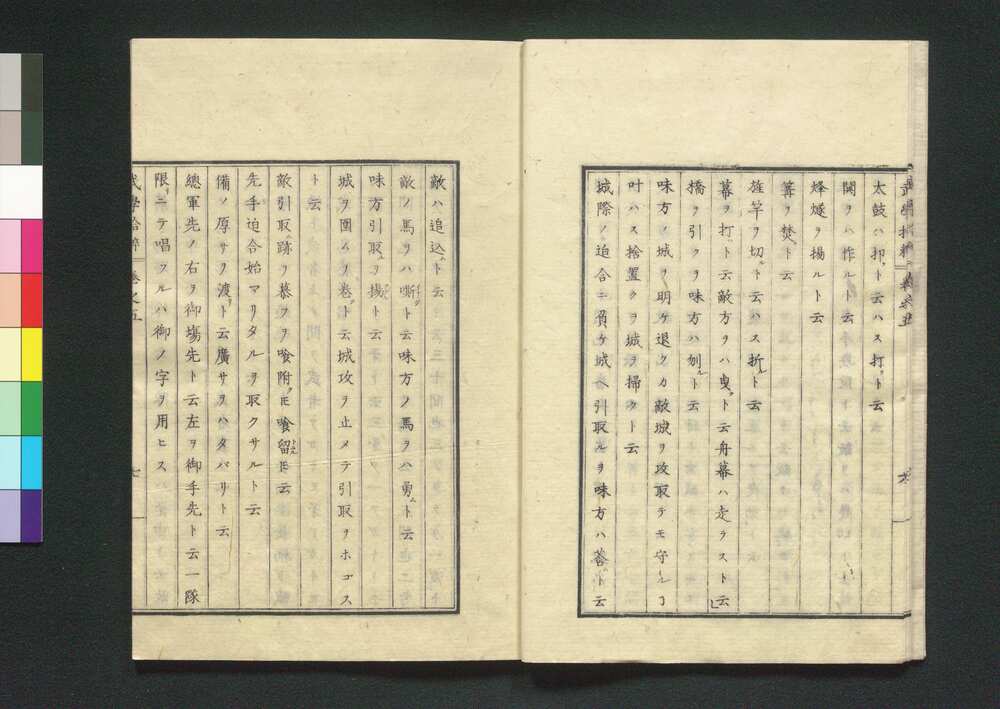 武學拾粹 卷之五
太鼓ハ扣ト云ハス打ツト云
鬨ヲハ作ルト云
烽燧ヲ揚ルト云
篝ヲ焚ト云
旌竿ヲ切ト云ハス折ルト云
幕ヲ打ト云敵方ヲハ曳ト云舟幕ハ走ラスト云
橋ヲ引クヲ味方ハ刎ルト云
味方ノ城ヲ明ケ退クカ敵城ヲ攻取テモ守ルヿ
叶ハス捨置クヲ城ヲ掃クト云
城際ノ迫合ニ負ケ城ヘ引取ルヲ味方ハ蓍ト云
六
敵ハ追込ト云
敵ノ馬ヲハ嘶ト云味方ノ馬ヲハ勇ト云
味方引取ヲ揚ト云
城ヲ圍ムヲ卷ト云城攻ヲ止メテ引取ヲホコス
ト云
敵引取跡ヲ慕フヲ喰附ㇳモ喰留ㇳモ云
先手迫合始マリタルヲ取クサルト云
備ノ厚サヲ渡ト云廣サヲハタハリト云
總軍先ノ右ヲ御塲先ト云左ヲ御手先ト云一隊
限ニテ唱フルハ御ノ字ヲ用ヒス
武學拾粹 卷之五
七